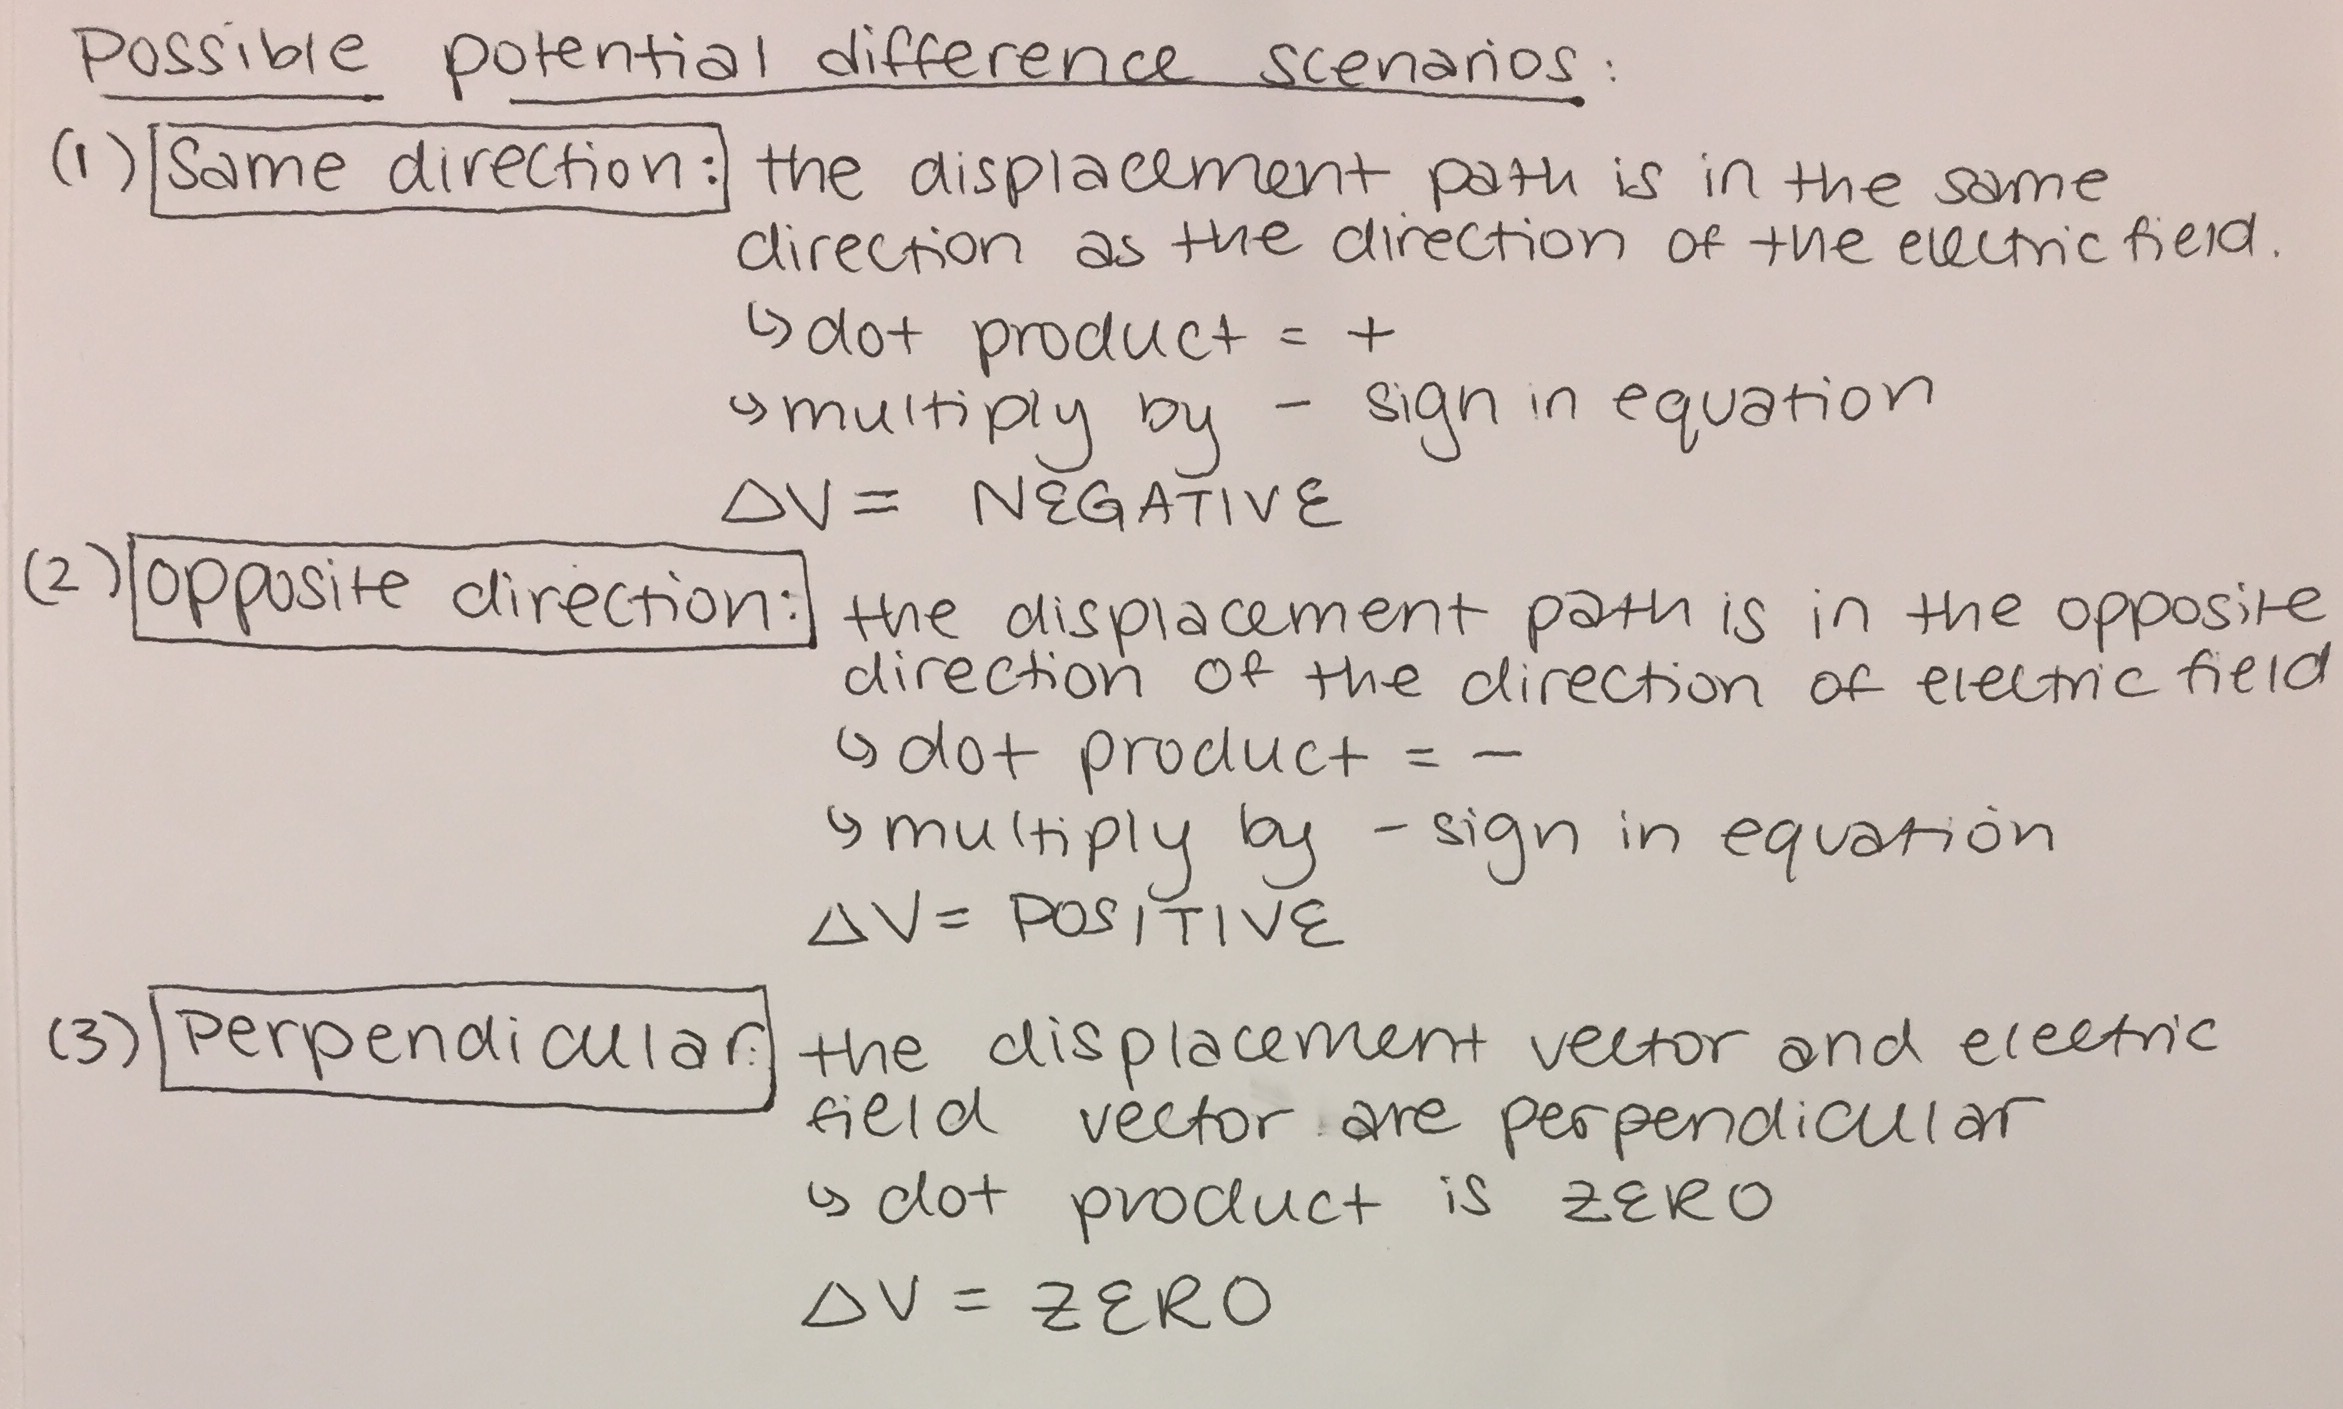 Possible potential difference scenarios:
(1) Same direction: the displacement path is in the same
direction as the direction of the electric field.
↳ dot product = +
↳ multiply by - sign in equation
ΔV = NEGATIVE
(2) opposite direction: the displacement path is in the opposite
direction of the direction of electric field
↳ dot product = -
↳ multiply by - sign in equation
ΔV = POSITIVE
(3) Perpendicular: the displacement vector and electric
field vector are perpendicular
↳ dot product is ZERO
ΔV = ZERO